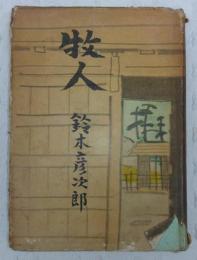 牧人
鈴木彦次郎